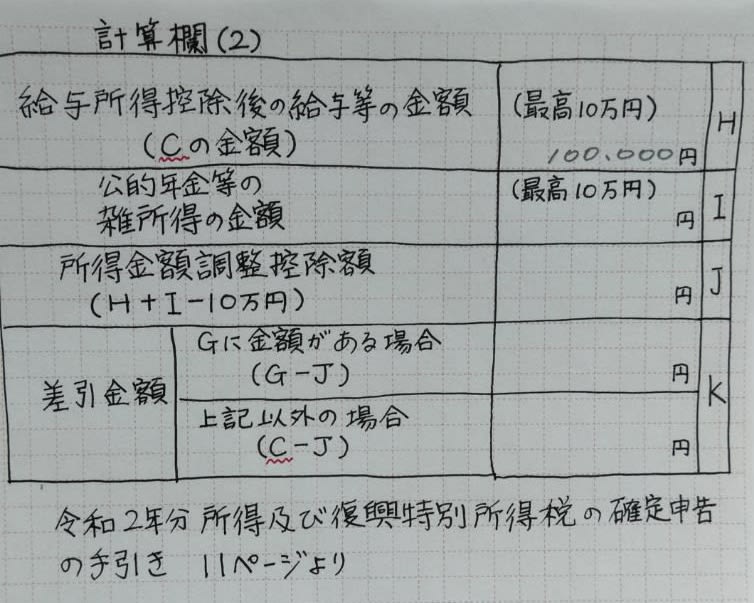 計算欄(2)
給与所得控除後の給与等の金額
(Cの金額)
(最高10万円)
100.000円
H
公的年金等の
雑所得の金額
(最高10万円)
円
I
所得金額調整控除額
(H+I-10万円)
円
J
差引金額
Gに金額がある場合
(G-J)
円
上記以外の場合
(C-J)
円
K
令和2年分 所得及び復興特別所得税の確定申告
の手引き 11ページより